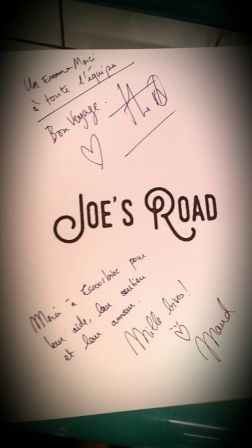 Un Enorme Merci
à toute l'équipe
Bon Voyage.
JOE'S ROAD
Merci à pour
leur aide, leur soutien
et leur amour.
Mille bises!
Maud